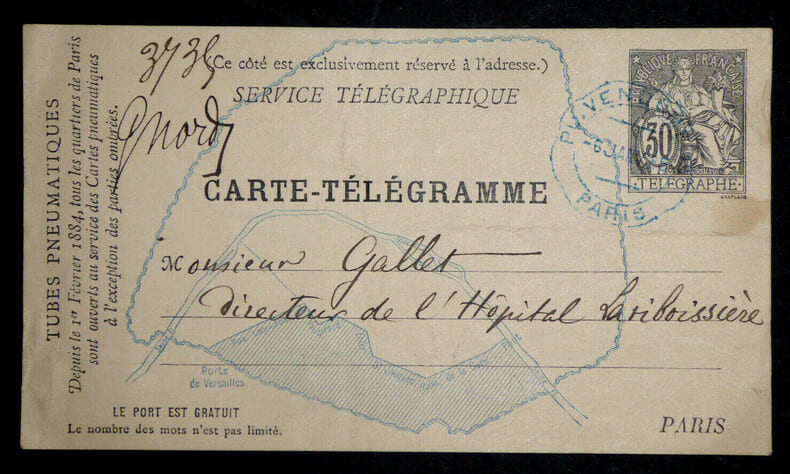 TUBES PNEUMATIQUES
Depuis le 1er Février 1884, tous les quartiers de Paris
sont ouverts au service des Cartes pneumatiques
à l'exception des parties ombrées.
(Ce côté est exclusivement réservé à l'adresse.)
SERVICE TÉLÉGRAPHIQUE
CARTE-TÉLÉGRAMME
RÉPUBLIQUE FRANÇAISE
30
TÉLÉGRAPHE
CHAPLAIN
PARIS
Monsieur Gallet
Directeur de l'Hôpital Lariboissière
Porte
de Versailles
LE PORT EST GRATUIT
Le nombre des mots n'est pas limité.
PARIS